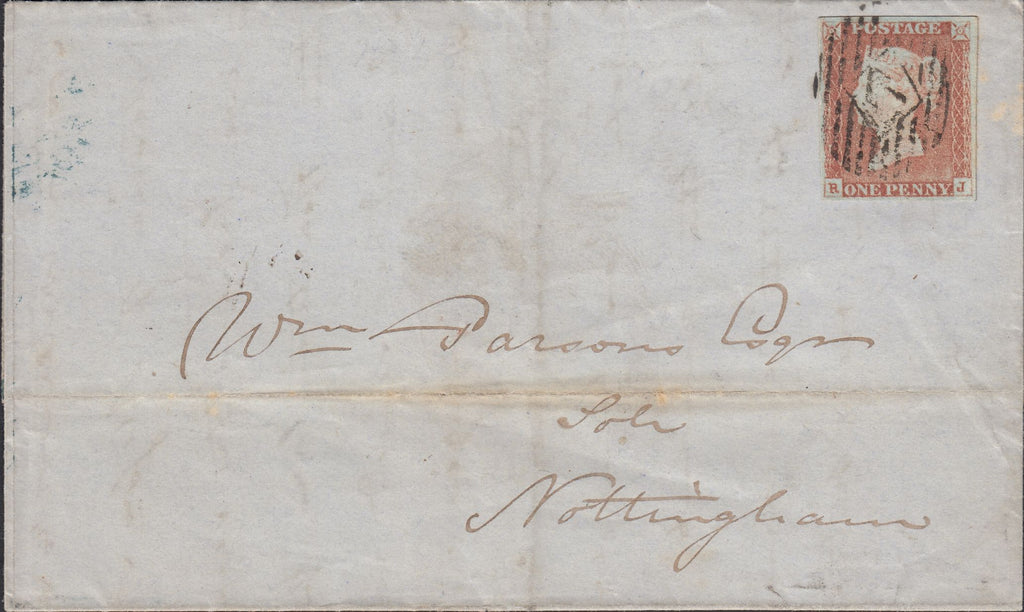 POSTAGE
R ONE PENNY J
Wm Parsons Esqr
Solr
Nottingham